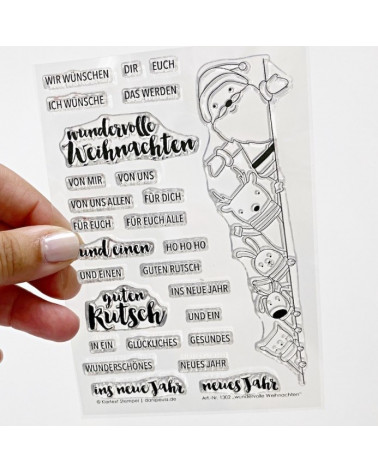 WIR WÜNSCHEN DIR EUCH
ICH WÜNSCHE DAS WERDEN
wundervolle
Weihnachten
VON MIR VON UNS
VON UNS ALLEN FÜR DICH
FÜR EUCH FÜR EUCH ALLE
und einen HO HO HO
UND EINEN GUTEN RUTSCH
guten
Rutsch
INS NEUE JAHR
UND EIN
IN EIN GLÜCKLICHES GESUNDES
WUNDERSCHÖNES NEUES JAHR
ins neue Jahr neues Jahr
Stempel | danipeuss.de Art.-Nr. 1303 „wundervolle Weihnachten"